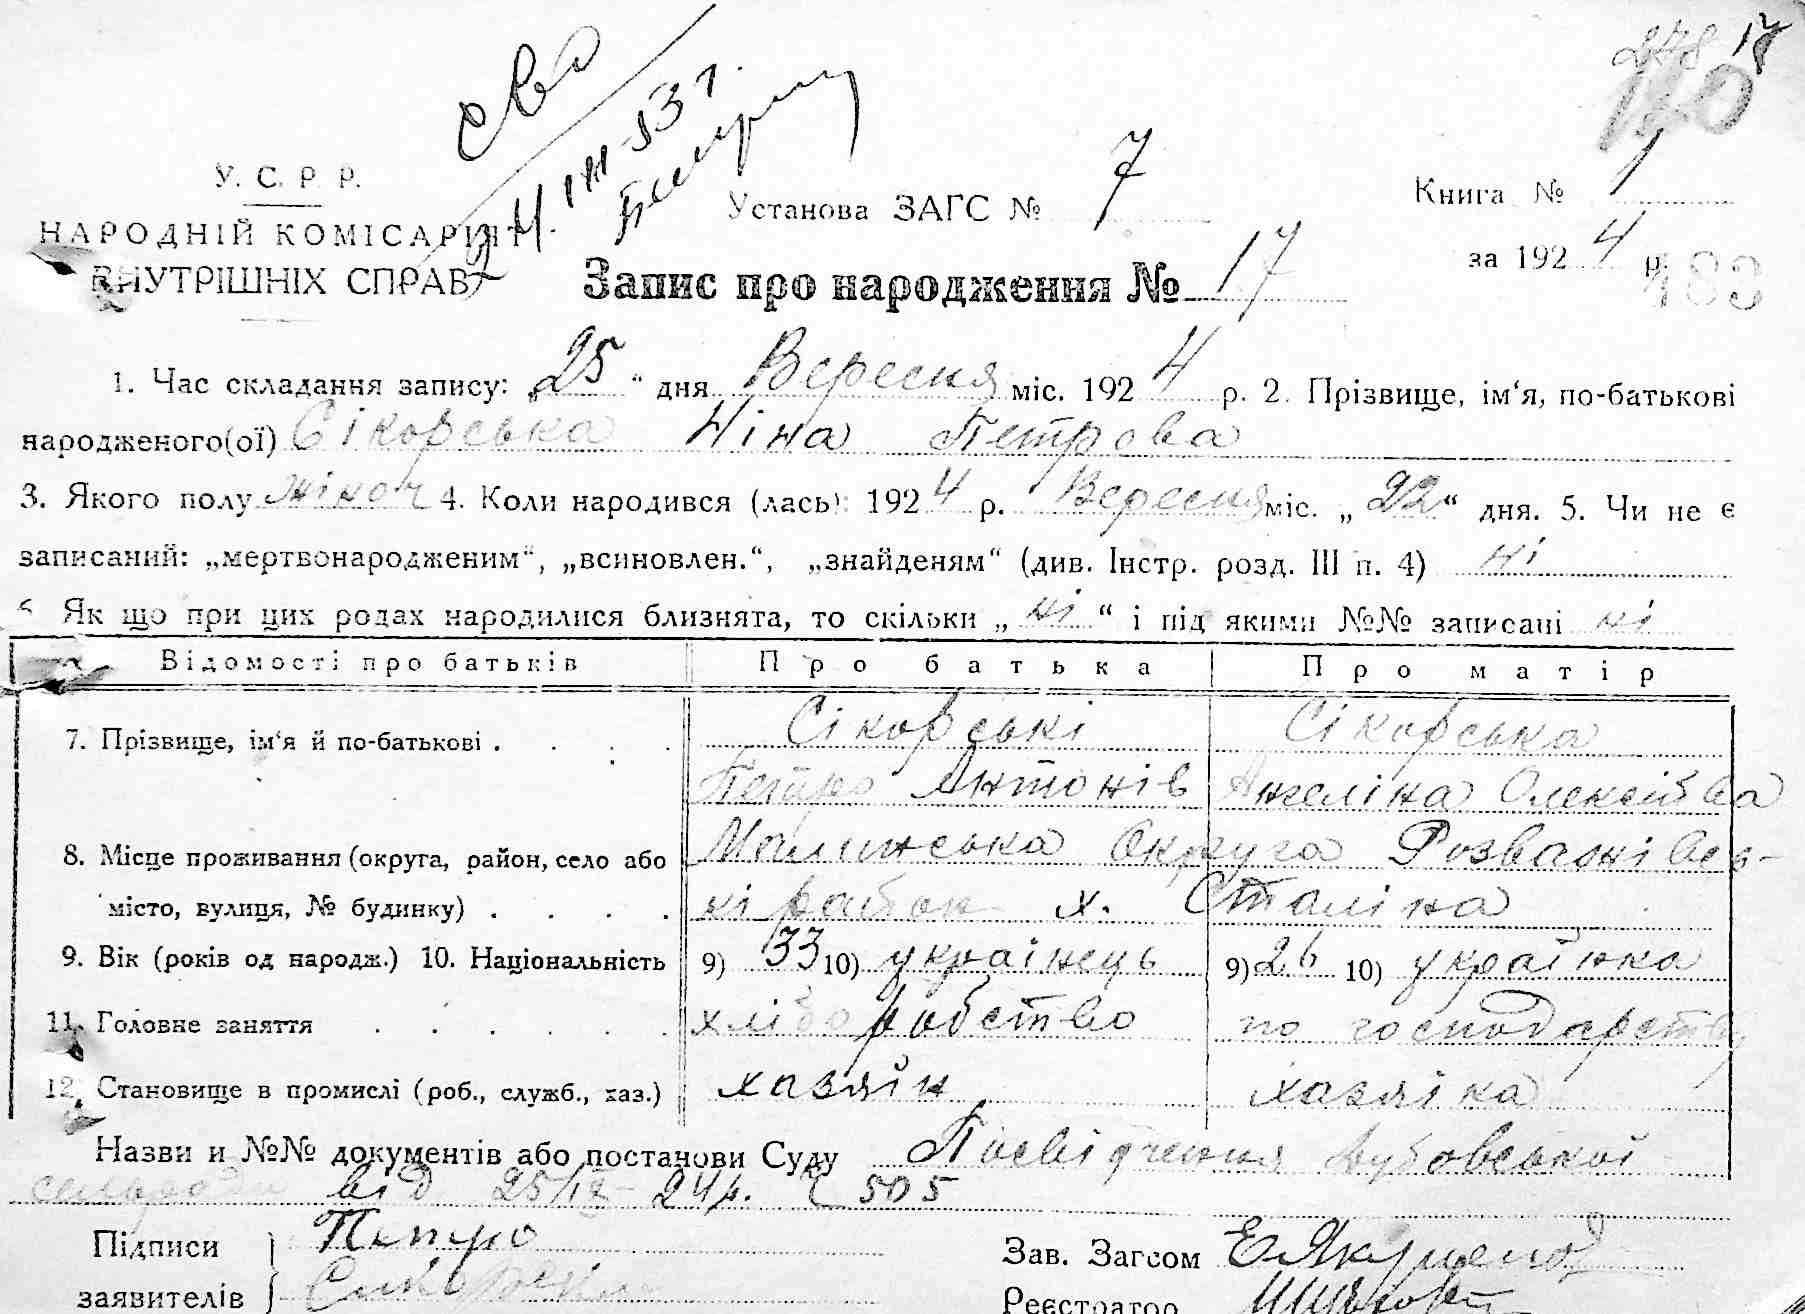 278 17
У. С. Р. Р.
НАРОДНІЙ КОМІСАРІЯТ
ВНУТРІШНІХ СПРАВ
Установа ЗАГС № 7
Книга № 1
за 1924 р.
183
Запис про народження № 17
1. Час складання запису: „25“ дня Вересня міс. 1924 р. 2. Прізвище, ім‘я, по-батькові
народженого(ої) Сікорська Ніна Петрова
3. Якого полу жіноч 4. Коли народився (лась): 1924 р. Вересня міс. „22“ дня. 5. Чи не є
записаний: „мертвонародженим“, „всиновлен.“, „знайденям“ (див. Інстр. розд. III п. 4) ні
Як що при цих родах народилися близнята, то скільки „ні“ і під якими №№ записані ні
Відомості про батьків Про батька Про матір
7. Прізвище, ім‘я й по-батькові . . . . Сікорські Сікорська
Петро Антонів Ангеліна Олексіїва
8. Місце проживання (округа, район, село або Малинська Округа Розважівсь-
місто, вулиця, № будинку) . . . . кі район х. Сталіна
9. Вік (років од народж.) 10. Національність 9) 33 10) українець 9) 26 10) українка
11. Головне заняття . . . . . . хліборобство по господарству
12. Становище в промислі (роб., служб., хаз.) хазяїн хазяїка
Назви и №№ документів або постанови Суду Посвідчення Дубовської
сельради від 25/IX 24 р. 505
Підписи Петро
заявителів Сикорский
Зав. Загсом
Реєстратор